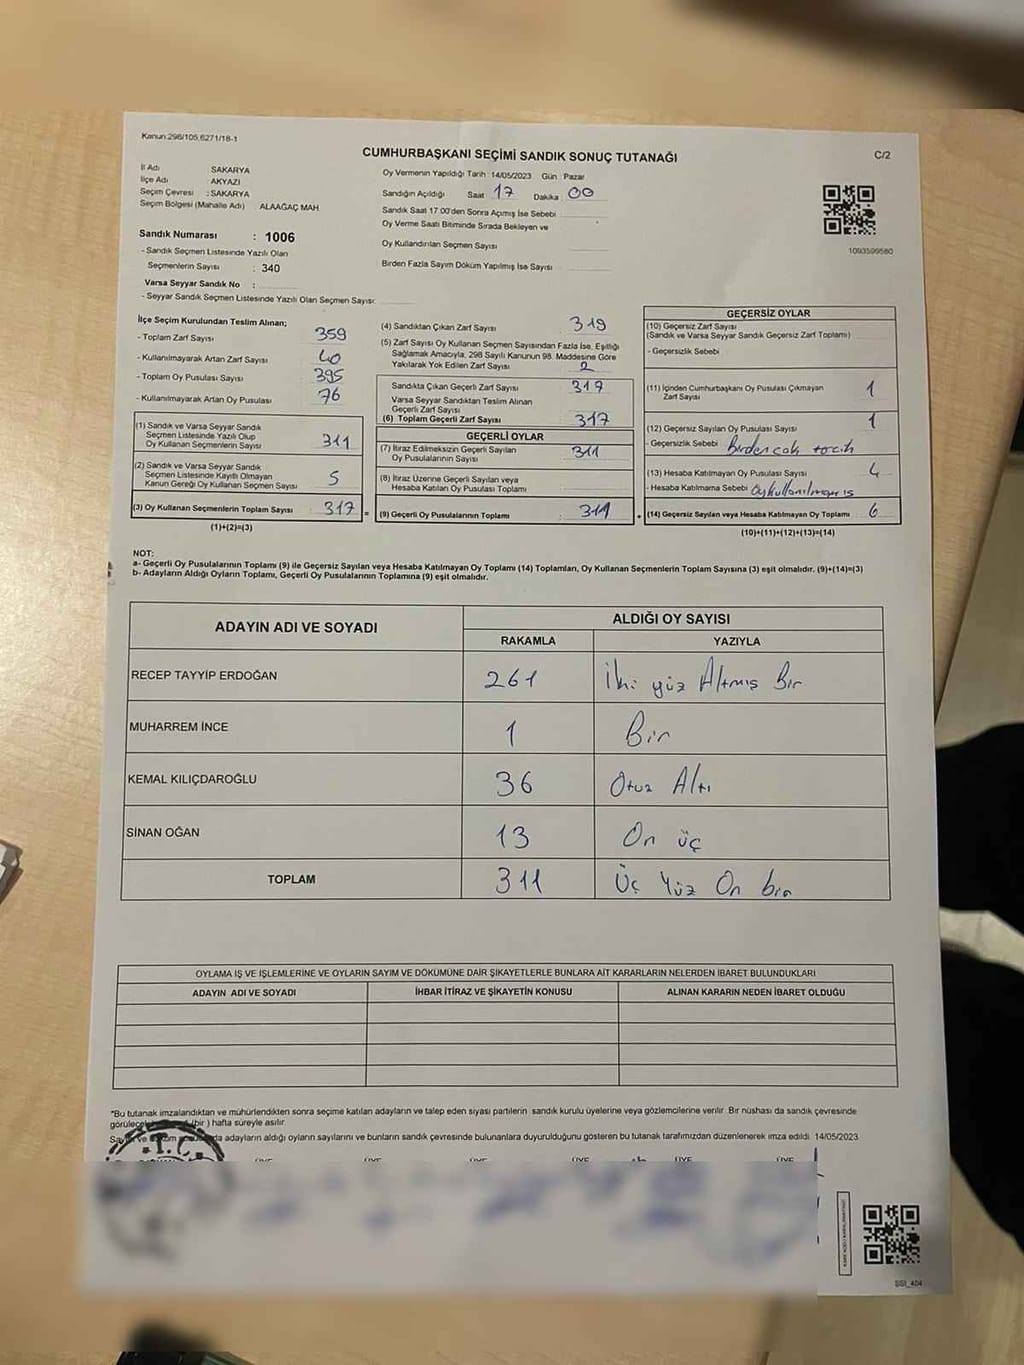 Kanun:298/105,6271/18-1
CUMHURBAŞKANI SEÇİMİ SANDIK SONUÇ TUTANAĞI
C/2
İl Adı SAKARYA
İlçe Adı AKYAZI
Seçim Çevresi : SAKARYA
Seçim Bölgesi (Mahalle Adı) ALAAĞAÇ MAH
Sandık Numarası : 1006
- Sandık Seçmen Listesinde Yazılı Olan
Seçmenlerin Sayısı : 340
Varsa Seyyar Sandık No :
- Seyyar Sandık Seçmen Listesinde Yazılı Olan Seçmen Sayısı:
Oy Vermenin Yapıldığı Tarih : 14/05/2023 Gün : Pazar
Sandığın Açıldığı Saat 17 Dakika 00
Sandık Saat 17.00'den Sonra Açımış İse Sebebi
Oy Verme Saati Bitiminde Sırada Bekleyen ve
Oy Kullandırılan Seçmen Sayısı
Birden Fazla Sayım Döküm Yapılmış İse Sayısı
1093599580
İlçe Seçim Kurulundan Teslim Alınan;
- Toplam Zarf Sayısı 359
- Kullanılmayarak Artan Zarf Sayısı 40
- Toplam Oy Pusulası Sayısı 395
- Kullanılmayarak Artan Oy Pusulası 76
(1) Sandık ve Varsa Seyyar Sandık
Seçmen Listesinde Yazılı Olup
Oy Kullanan Seçmenlerin Sayısı 311
(2) Sandık ve Varsa Seyyar Sandık
Seçmen Listesinde Kayıtlı Olmayan
Kanun Gereği Oy Kullanan Seçmen Sayısı 5
(3) Oy Kullanan Seçmenlerin Toplam Sayısı 317 =
(1)+(2)=(3)
(4) Sandıktan Çıkan Zarf Sayısı 319
(5) Zarf Sayısı Oy Kullanan Seçmen Sayısından Fazla İse, Eşitliği
Sağlamak Amacıyla, 298 Sayılı Kanunun 98. Maddesine Göre
Yakılarak Yok Edilen Zarf Sayısı 2
Sandıkta Çıkan Geçerli Zarf Sayısı 317
Varsa Seyyar Sandıktan Teslim Alınan
Geçerli Zarf Sayısı
(6) Toplam Geçerli Zarf Sayısı 317
GEÇERLİ OYLAR
(7) İtiraz Edilmeksizin Geçerli Sayılan
Oy Pusulalarının Sayısı 311
(8) İtiraz Üzerine Geçerli Sayılan veya
Hesaba Katılan Oy Pusulası Toplamı
(9) Geçerli Oy Pusulalarının Toplamı 311 +
GEÇERSİZ OYLAR
(10) Geçersiz Zarf Sayısı
(Sandık ve Varsa Seyyar Sandık Geçersiz Zarf Toplamı)
- Geçersizlik Sebebi
(11) İçinden Cumhurbaşkanı Oy Pusulası Çıkmayan
Zarf Sayısı 1
(12) Geçersiz Sayılan Oy Pusulası Sayısı 1
- Geçersizlik Sebebi Birden çok tercih
(13) Hesaba Katılmayan Oy Pusulası Sayısı 4
- Hesaba Katılmama Sebebi Oy kullanılmamış
(14) Geçersiz Sayılan veya Hesaba Katılmayan Oy Toplamı 6
(10)+(11)+(12)+(13)=(14)
NOT:
a- Geçerli Oy Pusulalarının Toplamı (9) ile Geçersiz Sayılan veya Hesaba Katılmayan Oy Toplamı (14) Toplamları, Oy Kullanan Seçmenlerin Toplam Sayısına (3) eşit olmalıdır. (9)+(14)=(3)
b- Adayların Aldığı Oyların Toplamı, Geçerli Oy Pusulalarının Toplamına (9) eşit olmalıdır.
ADAYIN ADI VE SOYADI ALDIĞI OY SAYISI
RAKAMLA YAZIYLA
RECEP TAYYİP ERDOĞAN 261 İki yüz Altmış Bir
MUHARREM İNCE 1 Bir
KEMAL KILIÇDAROĞLU 36 Otuz Altı
SİNAN OĞAN 13 On üç
TOPLAM 311 Üç Yüz On bir
OYLAMA İŞ VE İŞLEMLERİNE VE OYLARIN SAYIM VE DÖKÜMÜNE DAİR ŞİKAYETLERLE BUNLARA AİT KARARLARIN NELERDEN İBARET BULUNDUKLARI
ADAYIN ADI VE SOYADI İHBAR İTİRAZ VE ŞİKAYETİN KONUSU ALINAN KARARIN NEDEN İBARET OLDUĞU
*Bu tutanak imzalandıktan ve mühürlendikten sonra seçime katılan adayların ve talep eden siyasi partilerin sandık kurulu üyelerine veya gözlemcilerine verilir. Bir nüshası da sandık çevresinde
(bir ) hafta süreyle asılır.
adayların aldığı oyların sayılarını ve bunların sandık çevresinde bulunanlara duyurulduğunu gösteren bu tutanak tarafımızdan düzenlenerek imza edildi. 14/05/2023
T.C.
ÜYE ÜYE ÜYE ÜYE ÜYE ÜYE
SSI_404